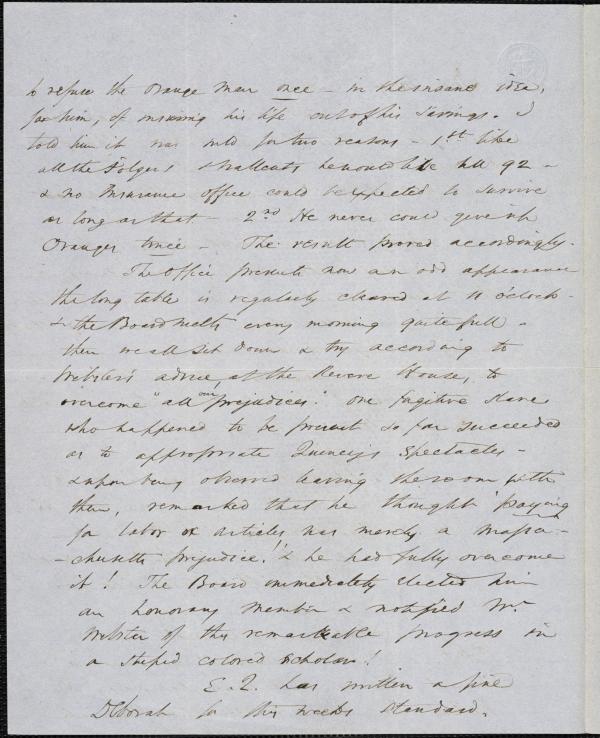 to refuse the orange man once – in the insane idea,
for him, of insuring his life out of his savings. I
told him it was mild for two reasons – 1st like
all the Folgers & Hallcuts he would live till 92 –
& no Insurance office could be expected to survive
as long as that – 2nd He never could give up
Oranges twice – The result proved accordingly.
The office presents now an odd appearance
the long table is regularly cleared at 11 o'clock –
& the Board meets every morning quite full –
then we all sit down & try according to
Webster's advice, at the Revere House, to
overcome "all our prejudices." One fugitive slave
who happened to be present so far succeeded
as to appropriate Quincy's spectacles –
& upon being observed leaving the room with
them, remarked that he thought 'paying
for labor or articles was merely a Massa-
-chusetts prejudice'! & he had fully overcome
it! The Board immediately elected him
an honorary member & notified Mr
Webster of this remarkable progress in
a stupid colored scholar!
E. Q. has written a fine
Deborah for this weeks Standard.